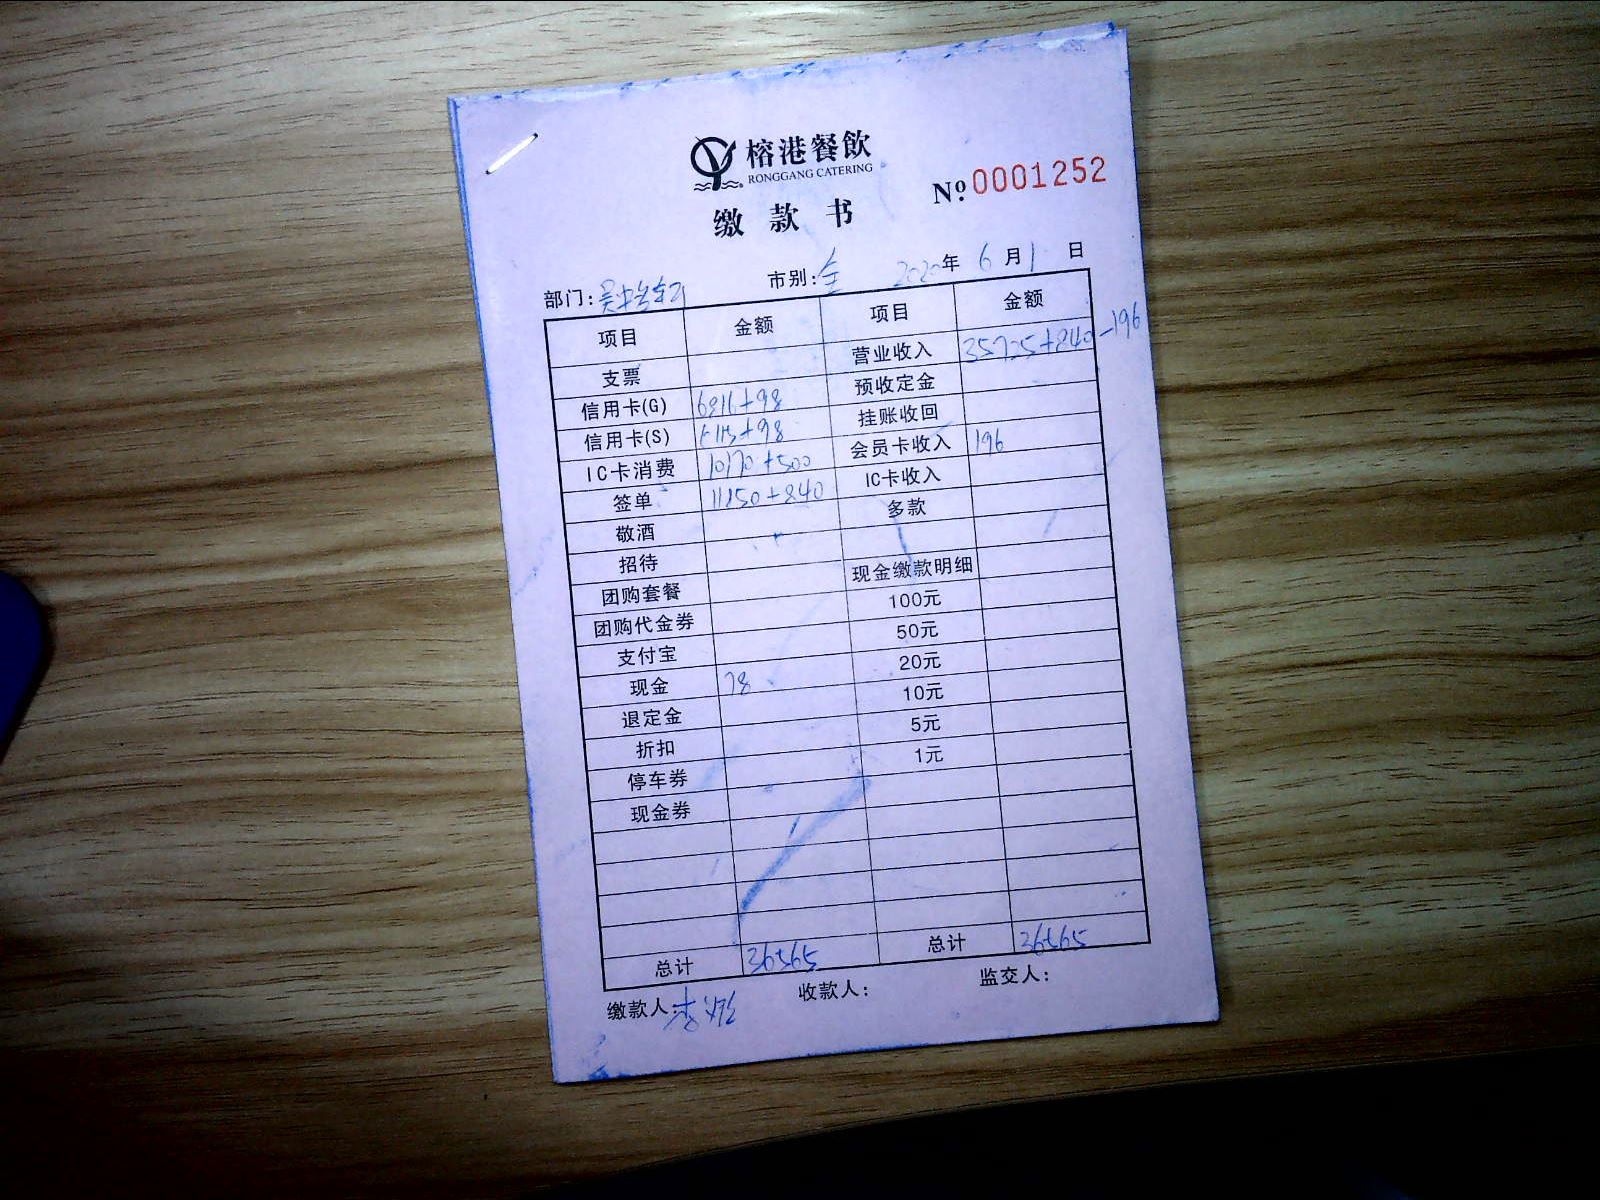 榕港餐飲
RONGGANG CATERING
№ 0001252
缴款书
部门: 市别:全 2020年 6月1日
项目 金额 项目 金额
支票 营业收入 35725+840-196
信用卡(G) 6816+98 预收定金
信用卡(S) +98 挂账收回
IC卡消费 10170+500 会员卡收入 196
签单 +840 IC卡收入
敬酒 多款
招待
团购套餐 现金缴款明细
团购代金券 100元
支付宝 50元
现金 78 20元
退定金 10元
折扣 5元
停车券 1元
现金券
总计 36565 总计 36565
缴款人: 收款人: 监交人: